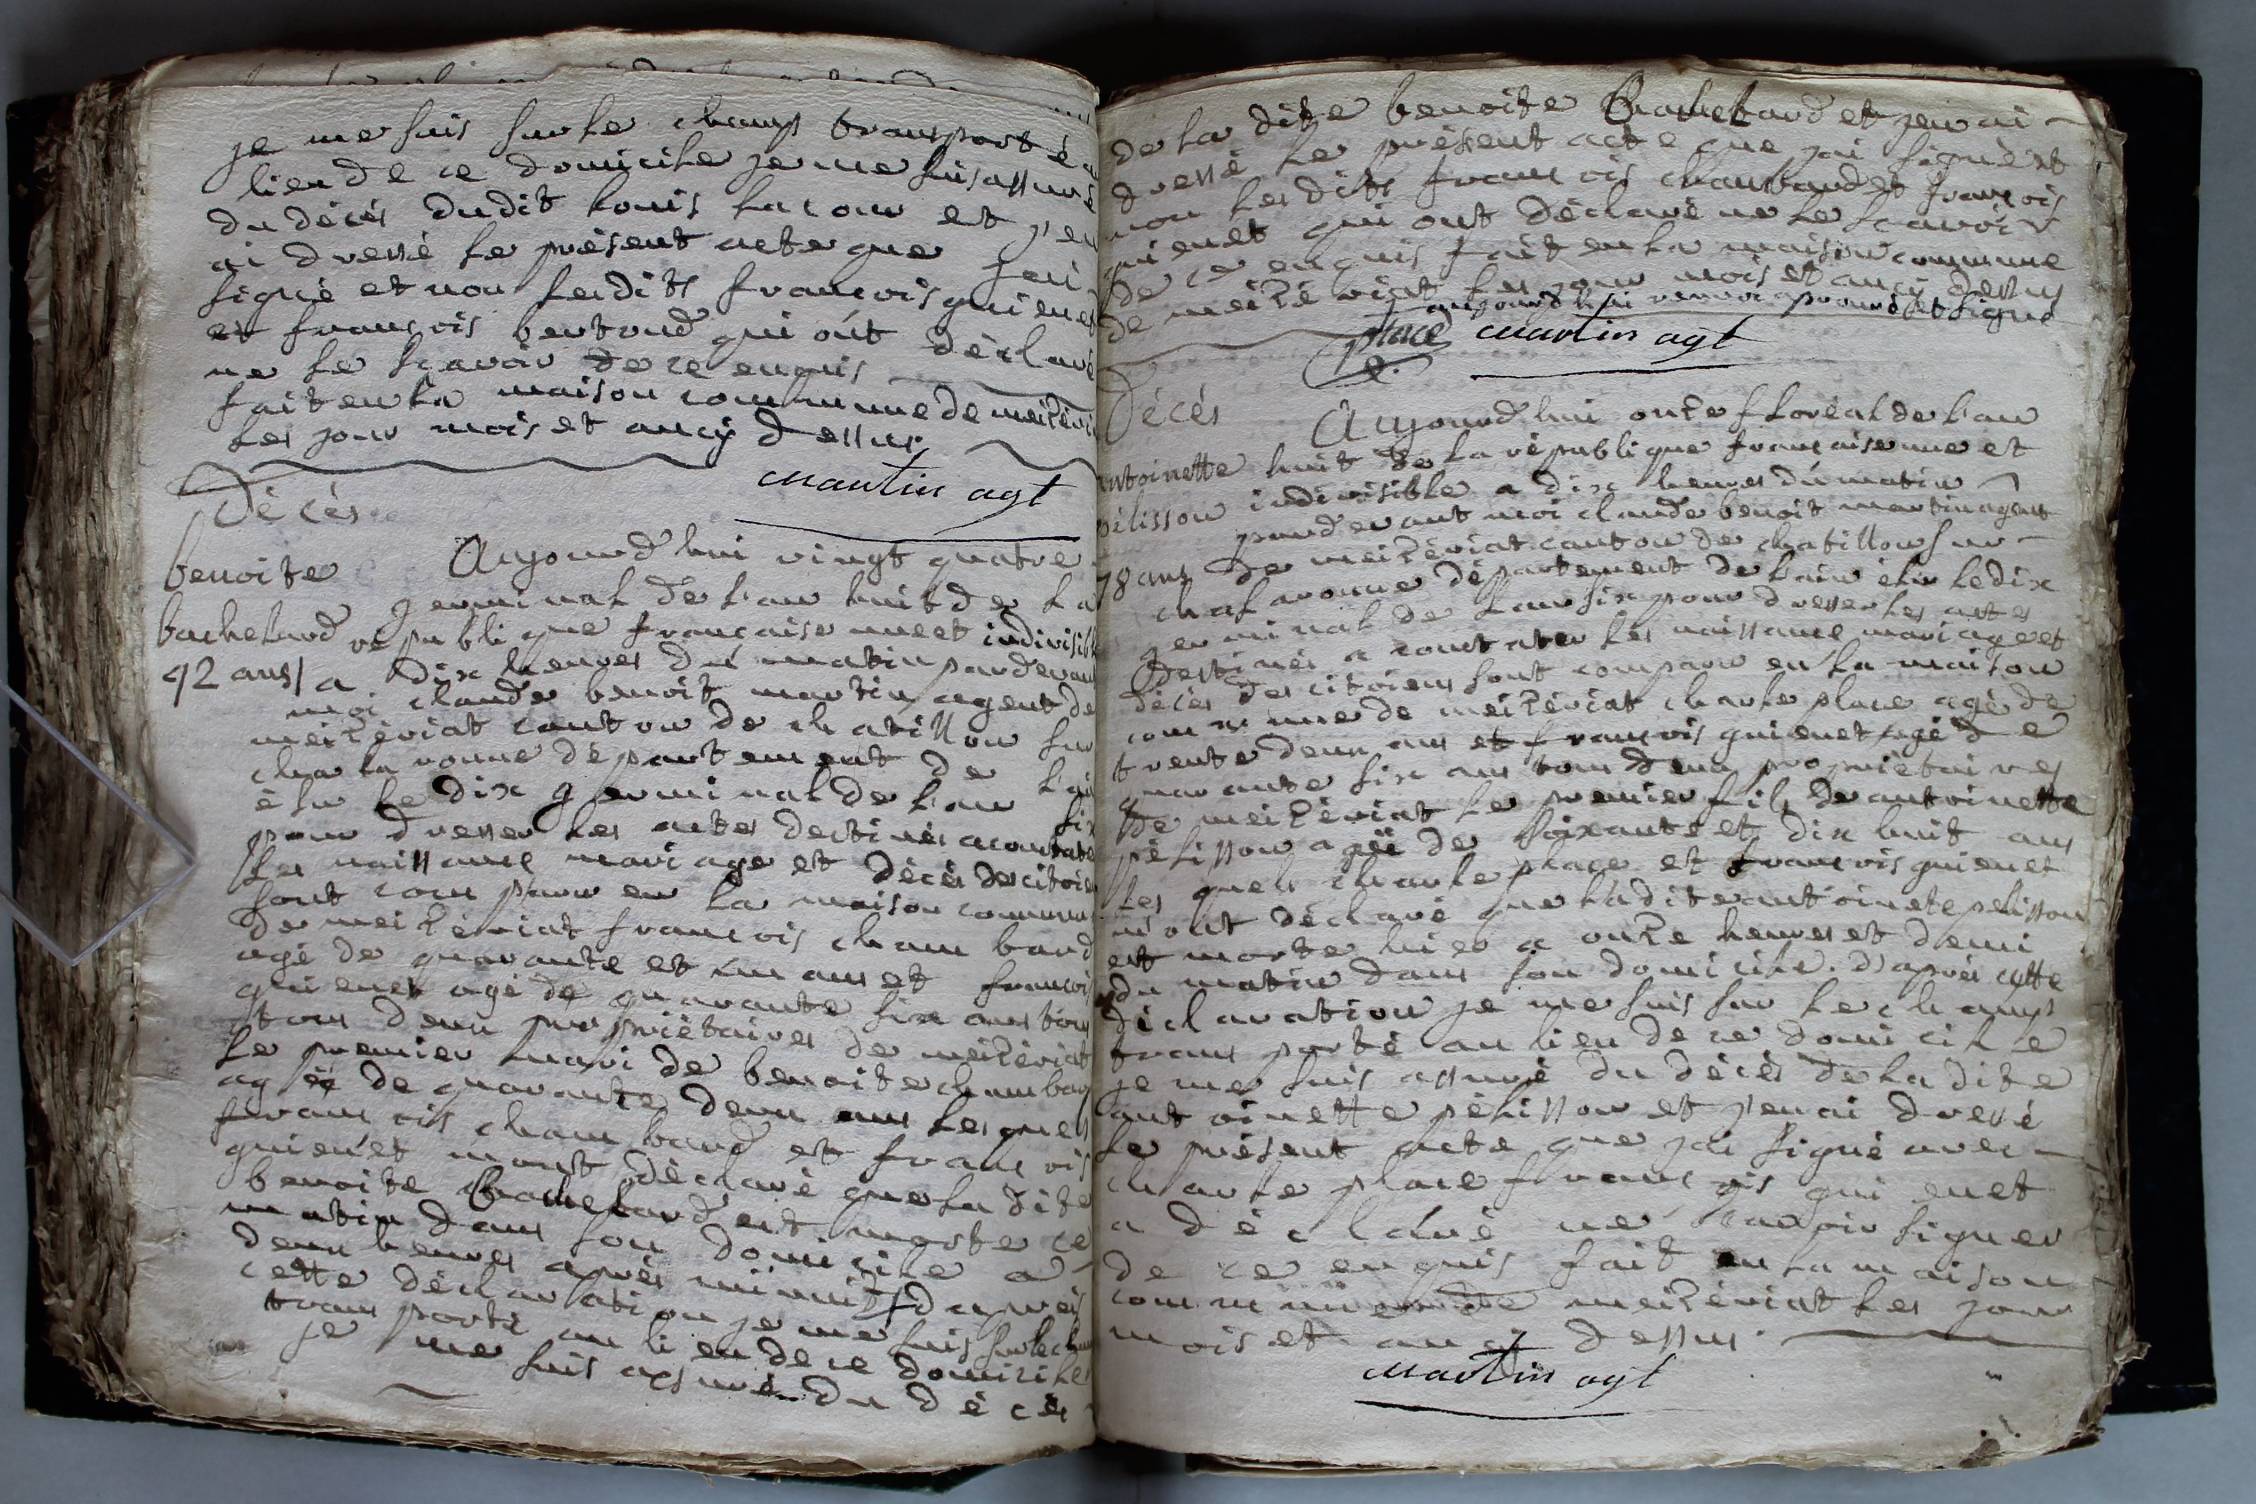 je me suis sur le champ transporté a
lieu de ce domicile je me suis assuré
du décés dudit louis lacour et j'en
ai dressé le présent acte que jeai
signé et non lesdits francois guienet
et francois bertoud qui ont déclaré
ne le scavoir de ce enquis
fait en la maison commune de meizéria
les jour mois et ancy dessus
martin agt
Décés
benoite
bachelard
42 ans
Aujourd'hui vingt quatre
germinal de l'an huit de la
république française une et indivisible
a dix heures du matin pardevant
moi claude benoit martin agent de
meizériat canton de chatillon sur
chalaronne département de l'ain
élu le dix germinal de l'an six
pour dresser les actes destinés aconstater
les naissance mariage et décés des citoiens
sont comparu en la maison commune
de meizériat francois chambard
agé de quarante et un ans et francois
guienet agé de quarante six ans tous
deux propriétaires de meizériat
le premier mari de benoite chambar
agéé de quarante deux ans lesquels
francois chambard et francois
guienet mont déclaré que la dite
benoite Bachelard est morte ce
matin dans son domicile a
deux heures aprés minuit daprés
cette déclaration je me suis sur le cham
transporté au lieu de ce domicile
je me suis assuré du décés
de la dite benoite Bachelard et jen ai
dressé le présent acte que jai signé et
non lesdits francois chambard et francois
guienet qui ont déclaré ne le scavoir
de ce enquis fait en la maison commune
de meizériat les jour mois et ancy dessus
aujourd'hui renvoi aprouvé et signé
place martin agt
Décés
antoinette
pélisson
78 ans
Aujourd'hui onze floréal de l'an
huit de la république française une et
indivisible a dix heures du matin
pardevant moi claude benoit martin agent
de meizériat canton de chatillon sur
chalaronne département de l'ain élu le dix
germinal de l'an six pour dresser les actes
destinés a constater les naissance mariage et
décés des citoiens sont comparu en la maison
commune de meizériat charle place agé de
trente deux ans et francois guienet agé de
quarante six ans tous deux propriétaires
de meizériat le premier fils de antoinette
pélisson agéé de soixante et dix huit ans
les quels charle place et francois guienet
m'ont déclaré que ladite antoinete pelisson
est morte hier a onze heures et demi
du matin dans son domicile. d'aprés cette
déclaration je me suis sur le champ
transporté au lieu de ce domicile
je me suis assuré du décés de la dite
antoinette pélisson et jen ai dressé
le présent acte que jai signé avec
charle place francois guienet
a déclaré ne scavoir signer
de ce enquis fait en la maison
commune de meizériat les jour
mois et an ci dessus.
martin agt